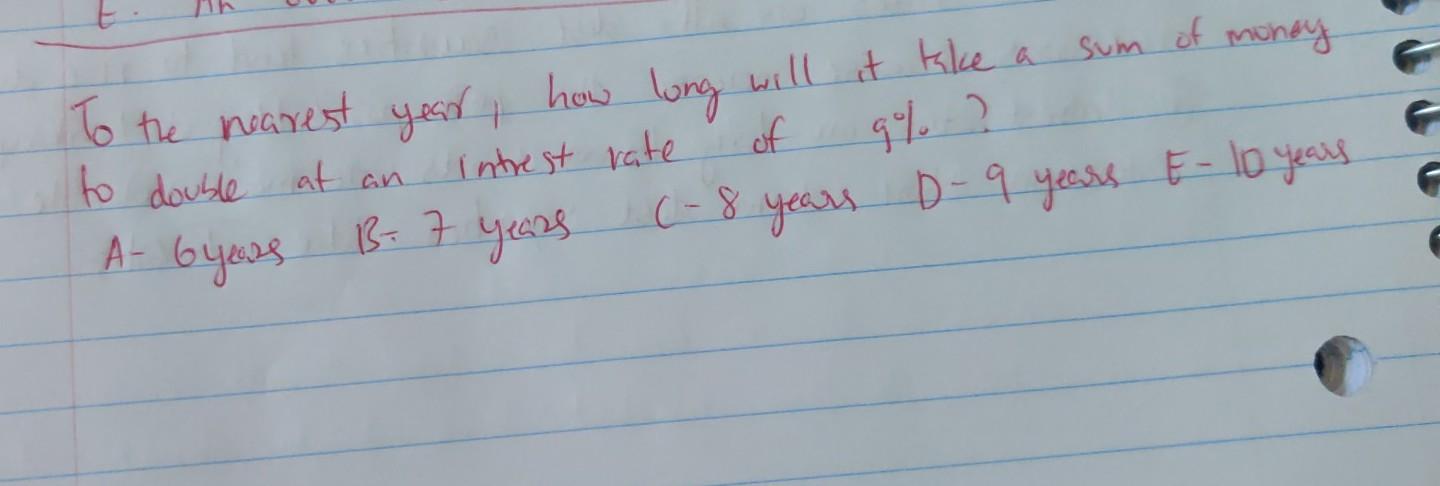 E.
To the nearest year, how long will it take a sum of money
to double at an intrest rate of 9% ?
A- 6 years B- 7 years C- 8 years D- 9 years E- 10 years